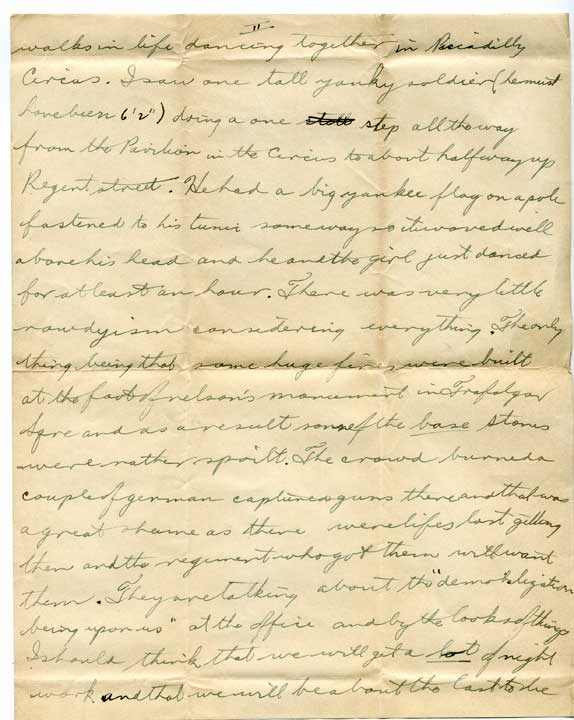 II
walks in life dancing together in Piccadilly
Circus. I saw one tall yanky soldier (he must
have been 6'2") doing a one step all the way
from the Pavilion in the Circus to about half way up
Regent street. He had a big yankee flag on a pole
fastened to his tunic someway so it waved well
above his head and he and the girl just danced
for at least an hour. There was very little
rowdyism considering everything. The only
thing being that some huge fires were built
at the foot of nelson's monument in Trafalgar
Sqre and as a result some of the base stones
were rather spoilt. The crowd burned a
couple of german captured guns there and that was
a great shame as there were lifes lost getting
them and the regiment who got them will want
them. They are talking about the "demobilization
being upon us" at the office and by the looks of things
I should think that we will get a lot of night
work and that we will be about the last to be